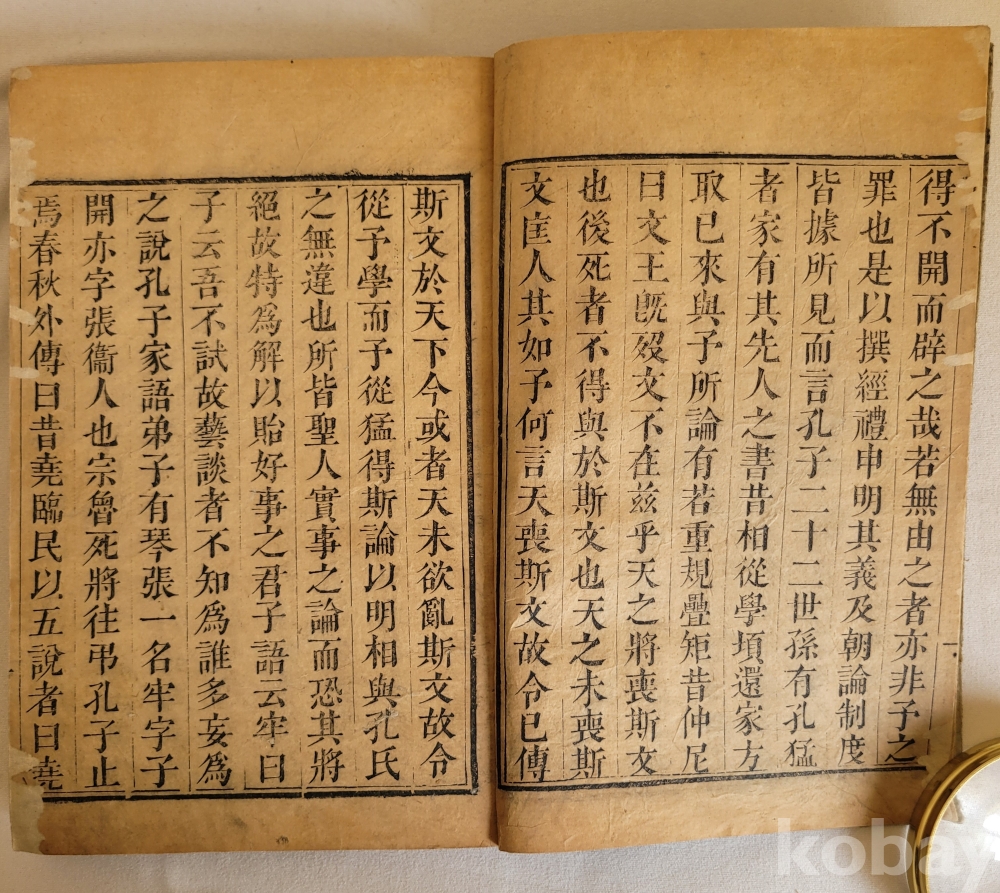 得不開而辟之哉若無由之者亦非予之
罪也是以撰經禮申明其義及朝論制度
皆據所見而言孔子二十二世孫有孔猛
者家有其先人之書昔相從學頃還家方
取已來與予所論有若重規疊矩昔仲尼
曰文王旣歿文不在茲乎天之將喪斯文
也後死者不得與於斯文也天之未喪斯
文匡人其如予何言天喪斯文故令已傳
斯文於天下今或者天未欲亂斯文故令
從予學而予從猛得斯論以明相與孔氏
之無違也所皆聖人實事之論而恐其將
絕故特爲解以貽好事之君子語云牢曰
子云吾不試故藝談者不知爲誰多妄爲
之說孔子家語弟子有琴張一名牢字子
開亦字張衞人也宗魯死將往弔孔子止
焉春秋外傳曰昔堯臨民以五說者曰堯
kobay